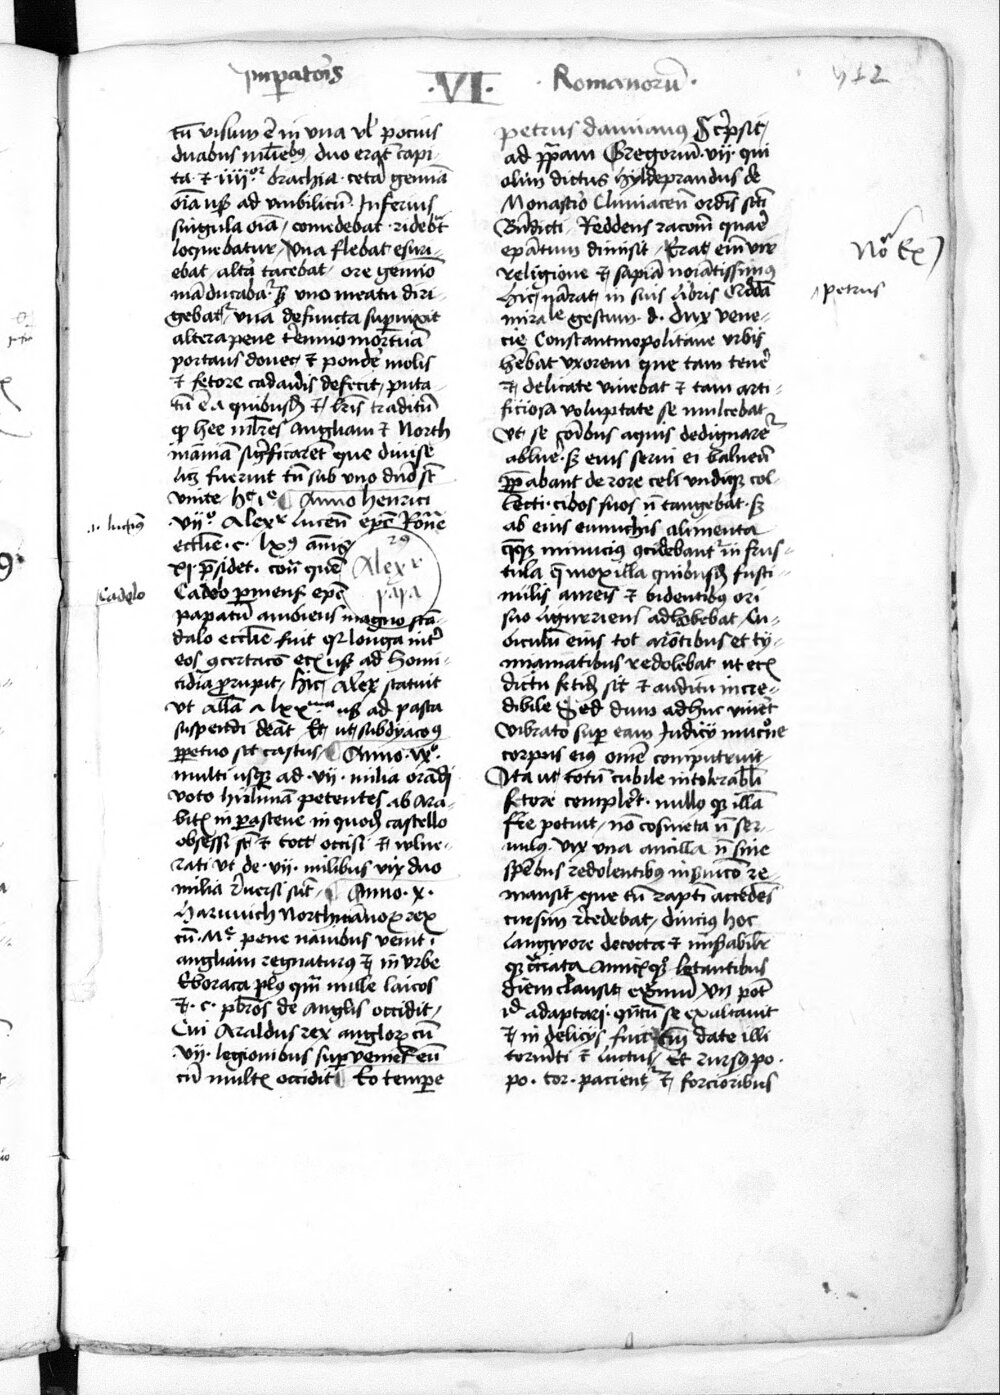 Imperatoris
·VI·
Romanorum
tum visum est in una vel pocius
duabus mulieribus duo erant capi-
ta et iiij.or brachia cetera gemina
omnia usque ad umbilicum. Inferius
singula omnia, comedebat ridebat
loquebatur, Una flebat esuri-
ebat altera tacebat, ore gemino
manducabat sed uno meatu diri-
gebat, una defuncta supervixit
altera pene triennio mortuam
portans donec et pondere molis
et fetore cadaveris defecit, puta-
tum est a quibusdam et litteris traditum
quod hee mulieres Angliam et North
manniam significarent que divise
licet fuerint tamen sub uno domino sunt
unite hec ille Anno henrici
·vij.º Alexr lucensis episcopus Romane
ecclesie ·c· lx9 annis
xi presidet. contra quem
Cadolo parmensis episcopus
papatum ambiens magno scan-
dalo ecclesie fuit quia longa inter
eos concertacio etc usque ad homi-
cidia prorupit, hic Alexr statuit
ut alleluia a lxxma usque ad pasca
suspendi debeat Et ut subdyaconus
perpetuo sit castus, Anno ·ix.º
multi usque ad ·vij· milia orandi
voto hierusalem petentes ab Ara-
bitis in parasceve in quodam castello
obsessi sunt et tot occisi et vulne-
rati ut de ·vij· milibus vix duo
milia reversi sint, Anno ·x·
Harunich Northmannorum rex
cum ·iijc· pene navibus venit in
angliam regnaturus et in urbe
Eboraca plus quam mille laicos
et ·c· presbiteros de Anglis occidit,
Cui Araldus rex anglorum cum
·vij· legionibus superveniens eum
cum multis occidit Eo tempore
29
Alexr
papa
.1. lucensis
Cadolo
petrus damianus Scripsit,
ad papam Gregorium ·vij· qui
olim dictus hyldeprandus de
Monasterio Cluniacensi ordinis sancti
Benedicti, Reddens racionem quare
episcopatum dimisit, Erat enim vir
religione et sapientia nominatissimus
hic narrat in suis libris Quoddam
mirabile gestum. d. Dux vene-
cie Constantinopolitane urbis
habebat uxorem que tam tenere
et delicate vivebat et tam arti-
ficiosa voluptate se mulcebat
Ut se communibus aquis dedignaretur
abluere. sed eius servi ei balneum
preparabant de rore celi undique col-
lecti. cibos suos non tangebat. sed
ab eius eunuchis alimenta
queque minucius concidebantur in frus-
tula que mox illa quibusdam fusci-
nulis aureis et bidentibus ori
suo liguriens adhibebat, Cu-
biculum eius tot aromatibus et ty-
miamatibus redolebat ut etiam
dictu fetidum sit et auditu incre-
dibile Sed dum adhuc viveret
vibrato super eam Judicij mucrone
corpus eius omne computruit,
Ita ut totum cubile intolerabili
fetore compleret. nullo que illam
ferre potuit, non cosmeta non ser-
vulus. vix una ancilla non sine
speciebus redolentibus in servicio re-
mansit que tamen raptim accedens
cursim recedebat, diucius hoc
langwore decocta et miserabiliter
cruciata Amicisque letantibus
diem clausit extremum Unde potest
id adaptari. quantum se exaltavit
et in delicijs fuit tantum date illi
tormenti et luctus, Et rursus po·
po. tor. pacient, et forcioribus
Petrus